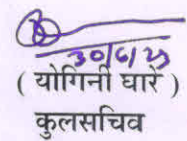 30/6/23
( योगिनी घारे )
कुलसचिव